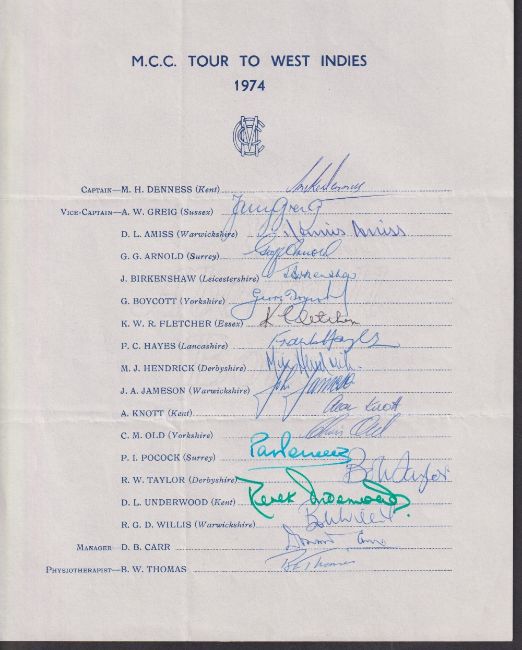 M.C.C. TOUR TO WEST INDIES
1974
MCC
CAPTAIN—M. H. DENNESS (Kent) Mike Denness
VICE-CAPTAIN—A. W. GREIG (Sussex) Tony Greig
D. L. AMISS (Warwickshire) Dennis Amiss
G. G. ARNOLD (Surrey) Geoff Arnold
J. BIRKENSHAW (Leicestershire) J Birkenshaw
G. BOYCOTT (Yorkshire) Geoff Boycott
K. W. R. FLETCHER (Essex) K Fletcher
F. C. HAYES (Lancashire) Frank Hayes
M. J. HENDRICK (Derbyshire) Mike Hendrick
J. A. JAMESON (Warwickshire) John Jameson
A. KNOTT (Kent) Alan Knott
C. M. OLD (Yorkshire) Chris Old
P. I. POCOCK (Surrey)
R. W. TAYLOR (Derbyshire) Bob Taylor
D. L. UNDERWOOD (Kent) Derek Underwood
R. G. D. WILLIS (Warwickshire) Bob Willis
MANAGER D. B. CARR Donald Carr
PHYSIOTHERAPIST—B. W. THOMAS B Thomas